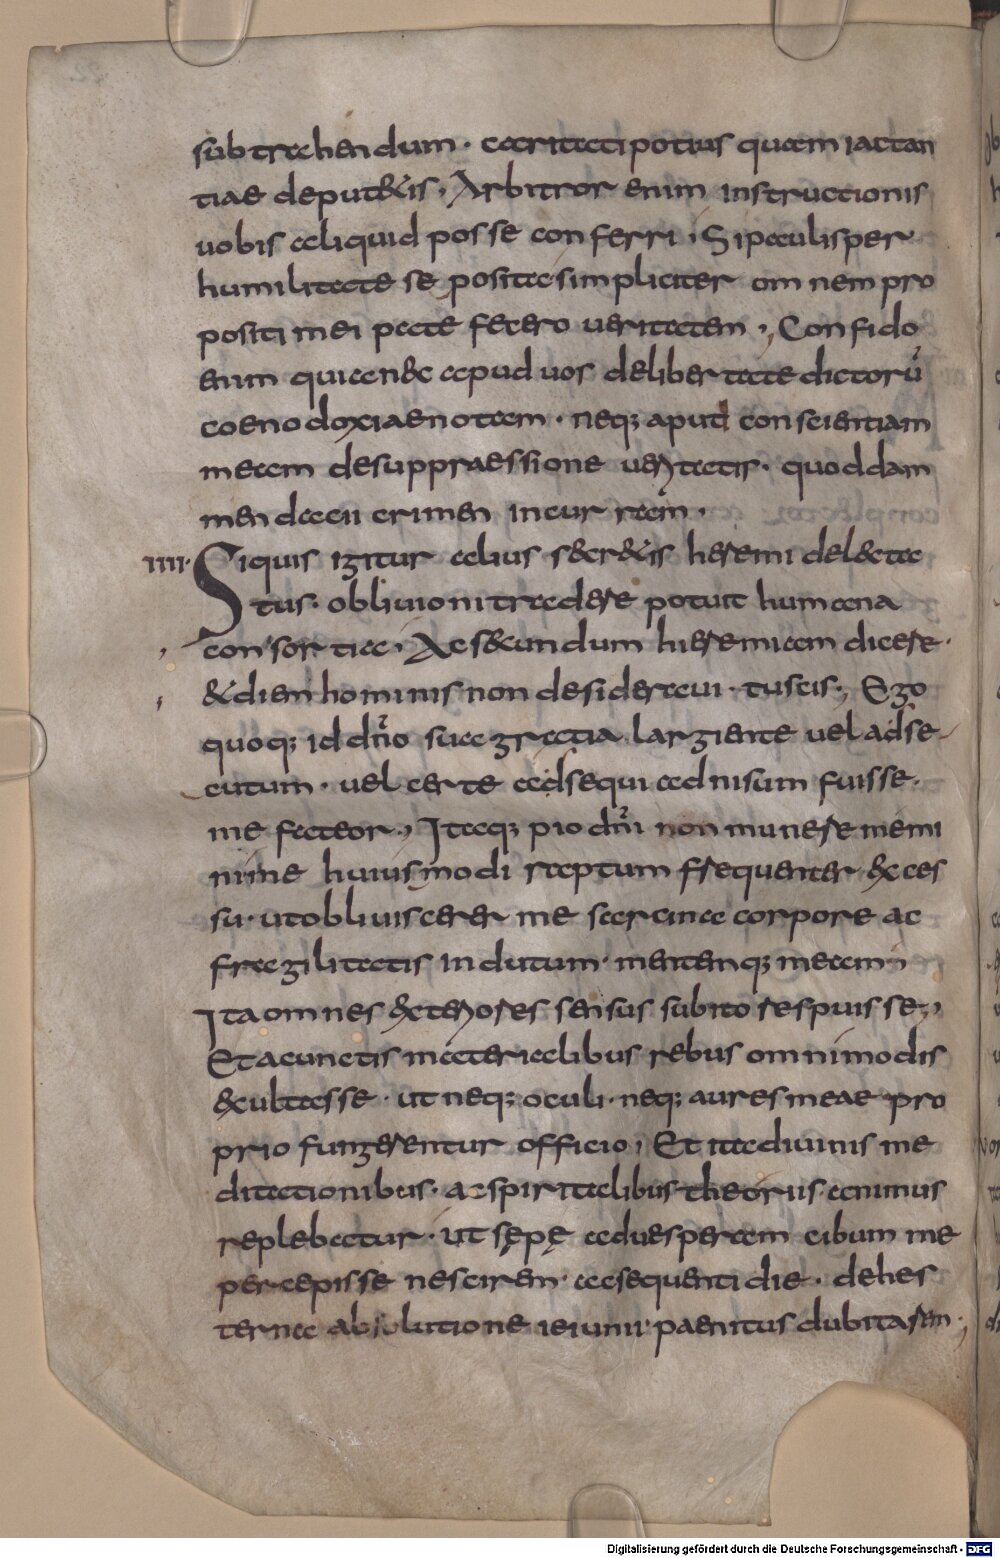 subtrahendum · caritati potius quam iactan
tiae deput&is, Arbitror enim instructionis
uobis aliquid posse conferri, Si paulisper
humilitate se posita simpliciter omnem pro
positi mei patefecero ueritatem, Confido
enim quia nec apud uos de libertate dictorū
coenodoxiae notam · neq; aput conscientiam
meam de suppraessione ueritatis · quoddam
mendacii crimen incurram ·
IIII· Siquis igitur alius s&cr&is heremi delecta
tus · obliuioni tradere potuit humana
consortia · Ac secundum hieremiam dicere ·
& diem hominis non desideraui · tu scis, Ego
quoq; id dn̄o sua gratia largiente uel adse
cutum · uel certe adsequi ad nisum fuisse ·
me fateor, Itaq; pio dn̄i non munere memi
nime huiusmodi raptum frequenter & exces
su · ut obliuiscerer me sarcina corpore ac
fragilitatis indutum · mentemq; meam
Ita omnes exteriores sensus subito respuisse,
Et a cunctis materialibus rebus omnimodis
excubasse · ut neq; oculi · neq; aures meae pro
prio fungerentur officio, Et ita diuinis me
ditationibus · ac spiritalibus theoriis animus
replebatur · ut sępę ad uesperam cibum me
percepisse nescirem · ac sequenti die · de hes
terna absolutione ieiunii paenitus dubitarem ·
Digitalisierung gefördert durch die Deutsche Forschungsgemeinschaft - DFG